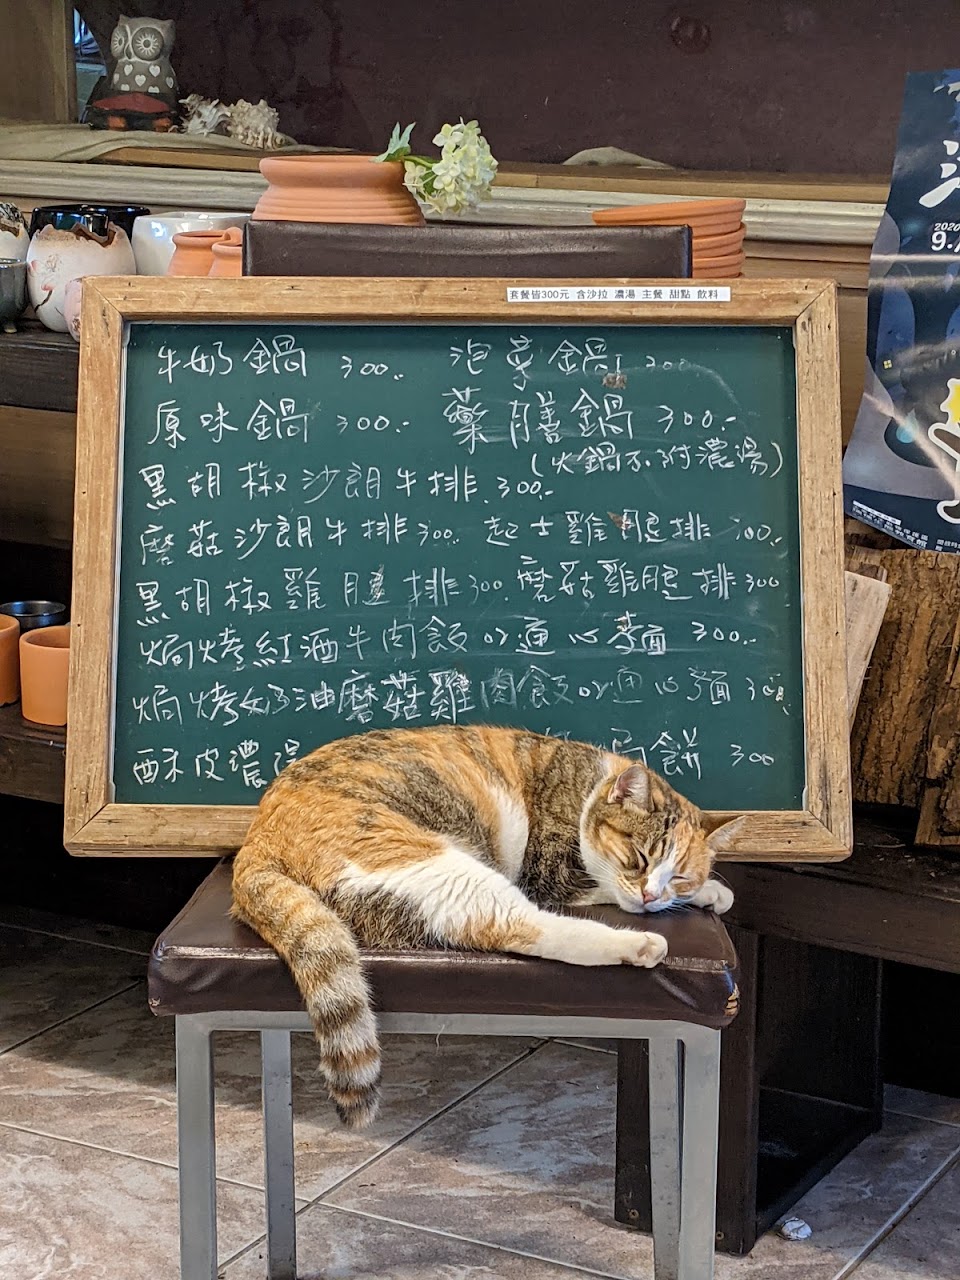 套餐皆300元 含沙拉 濃湯 主餐 甜點 飲料
牛奶鍋 300.- 泡菜鍋 300
原味鍋 300.- 藥膳鍋 300.-
(火鍋不附濃湯)
黑胡椒沙朗牛排 300.-
磨菇沙朗牛排 300.- 起士雞腿排 300.
黑胡椒雞腿排 300. 磨菇雞腿排 300
焗烤紅酒牛肉飯 or 通心麵 300.-
焗烤奶油磨菇雞肉飯 or 通心麵 300.
酥皮濃湯 餅 300
2020
9.